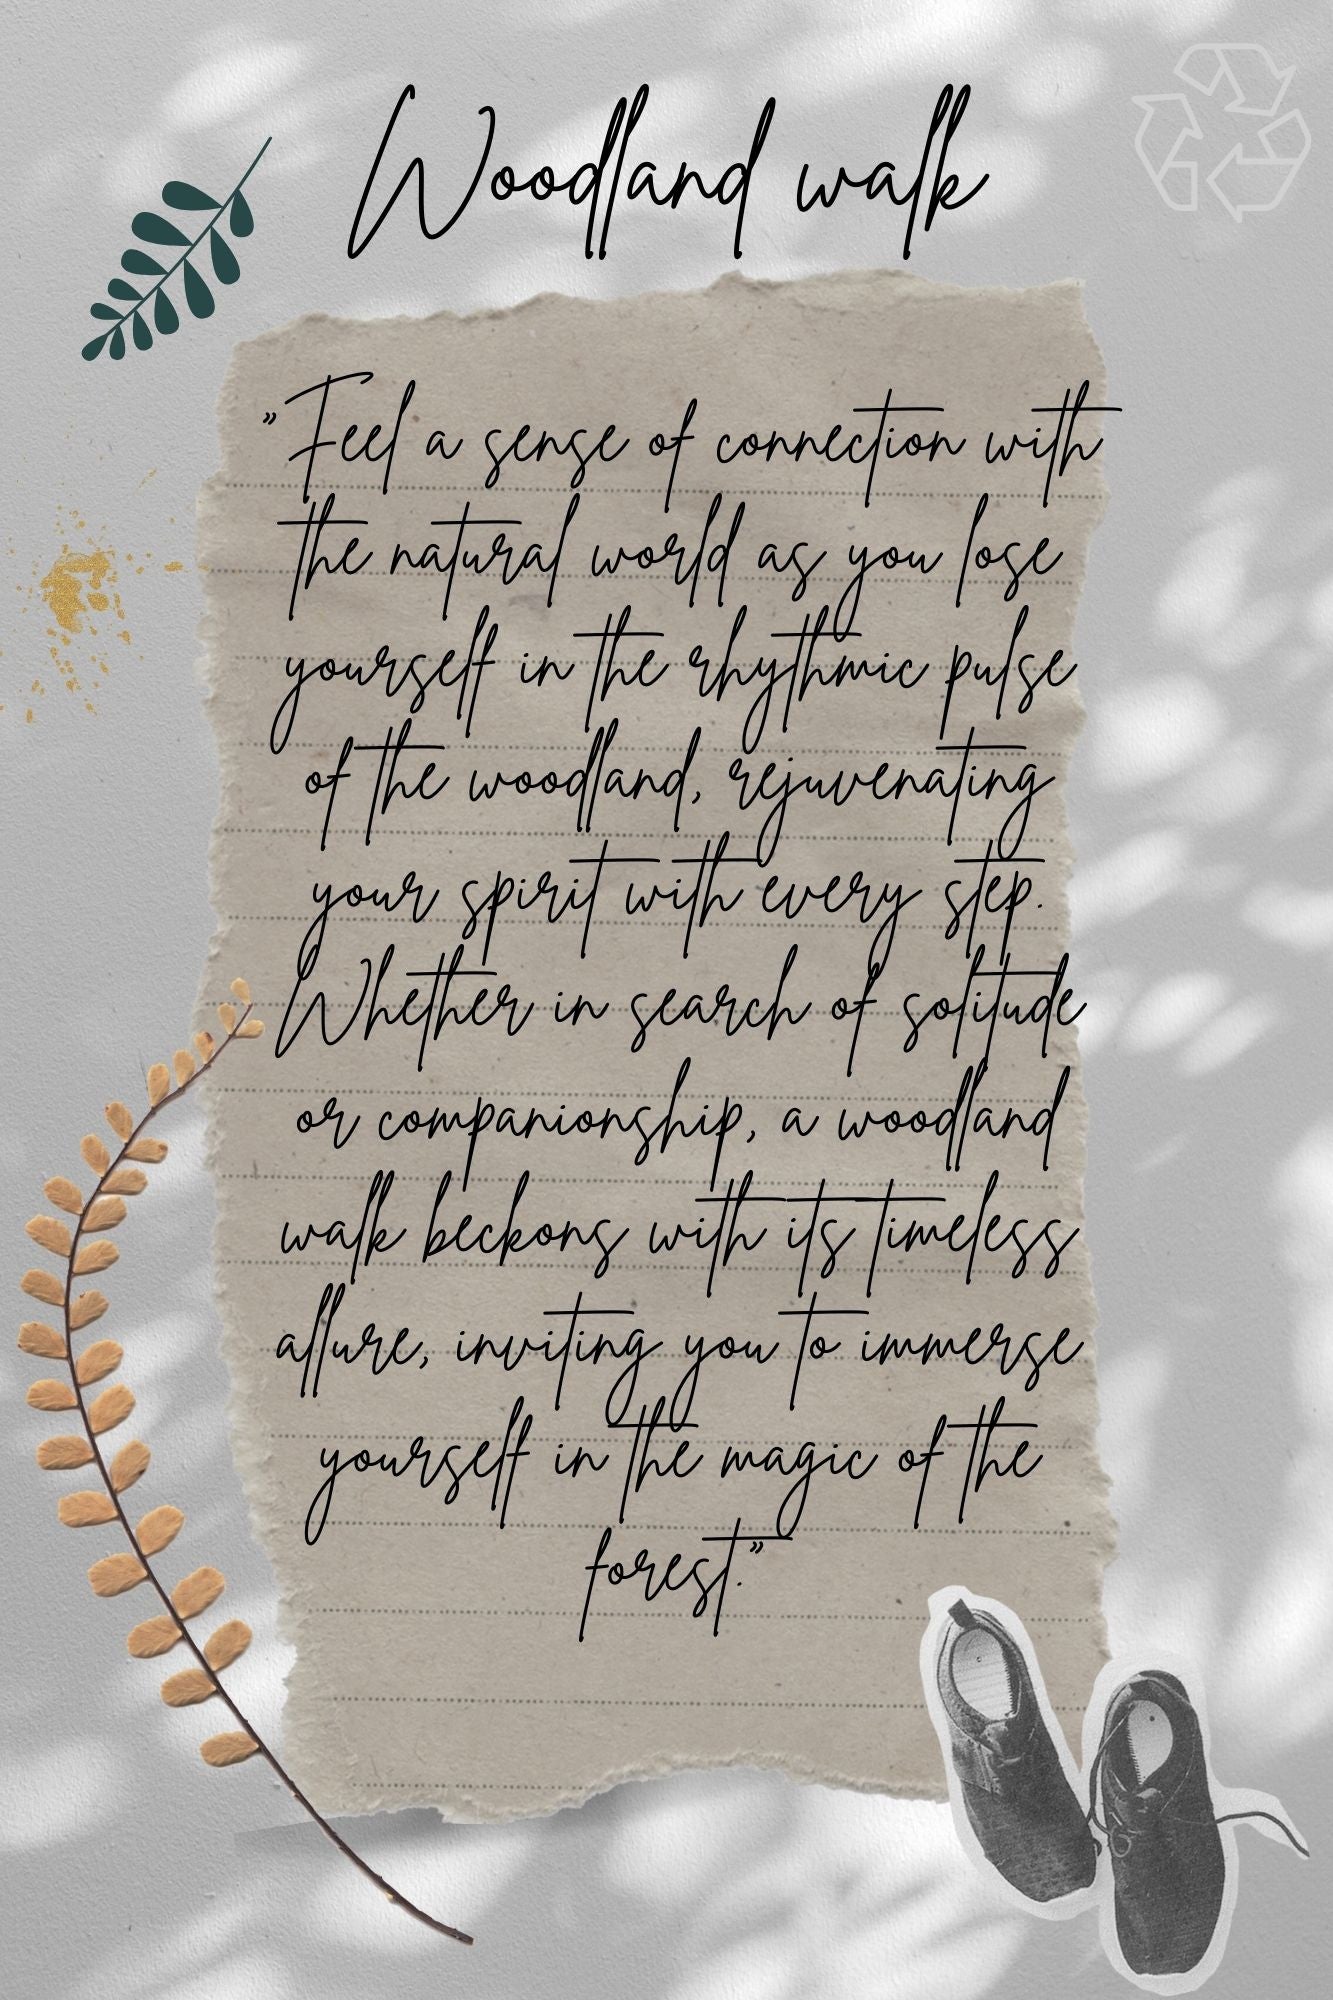 Woodland walk
"Feel a sense of connection with
the natural world as you lose
yourself in the rhythmic pulse
of the woodland, rejuvenating
your spirit with every step.
Whether in search of solitude
or companionship, a woodland
walk beckons with its timeless
allure, inviting you to immerse
yourself in the magic of the
forest."